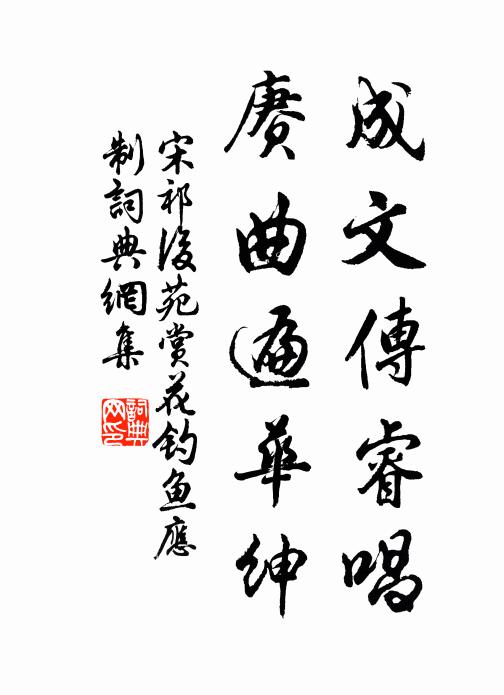 成文傳睿唱
賡曲遍華紳
宋祁後苑赏花钓鱼應
制詞典網集
詞典
网印